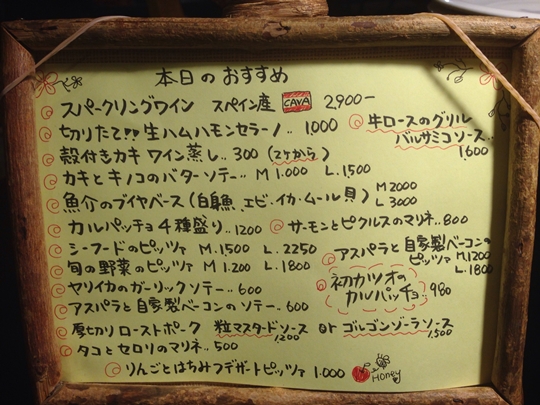 本日のおすすめ
スパークリングワイン スペイン産 CAVA 2,900-
切りたて!! 生ハムハモンセラーノ‥1,000
牛ロースのグリル
バルサミコソース‥
1,600
殻付きカキ ワイン蒸し‥300 (2ケから)
カキとキノコのバターソテー‥M 1.000 L.1500
魚介のブイヤベース (白身魚、エビ、イカ、ムール貝) M 2000
L 3000
カルパッチョ4種盛り‥1200
サーモンとピクルスのマリネ‥800
シーフードのピッツァ M.1500 L.2250
アスパラと自家製ベーコンの
ピッツァ M 1200
L.1800
旬の野菜のピッツァ M 1.200 L.1800
初カツオの
カルパッチョ‥980
ヤリイカのガーリックソテー‥600
アスパラと自家製ベーコンのソテー‥600
厚切りローストポーク 粒マスタードソース or ゴルゴンゾーラソース
1,200 1,500
タコとセロリのマリネ‥500
りんごとはちみつデザートピッツァ 1.000
Honey